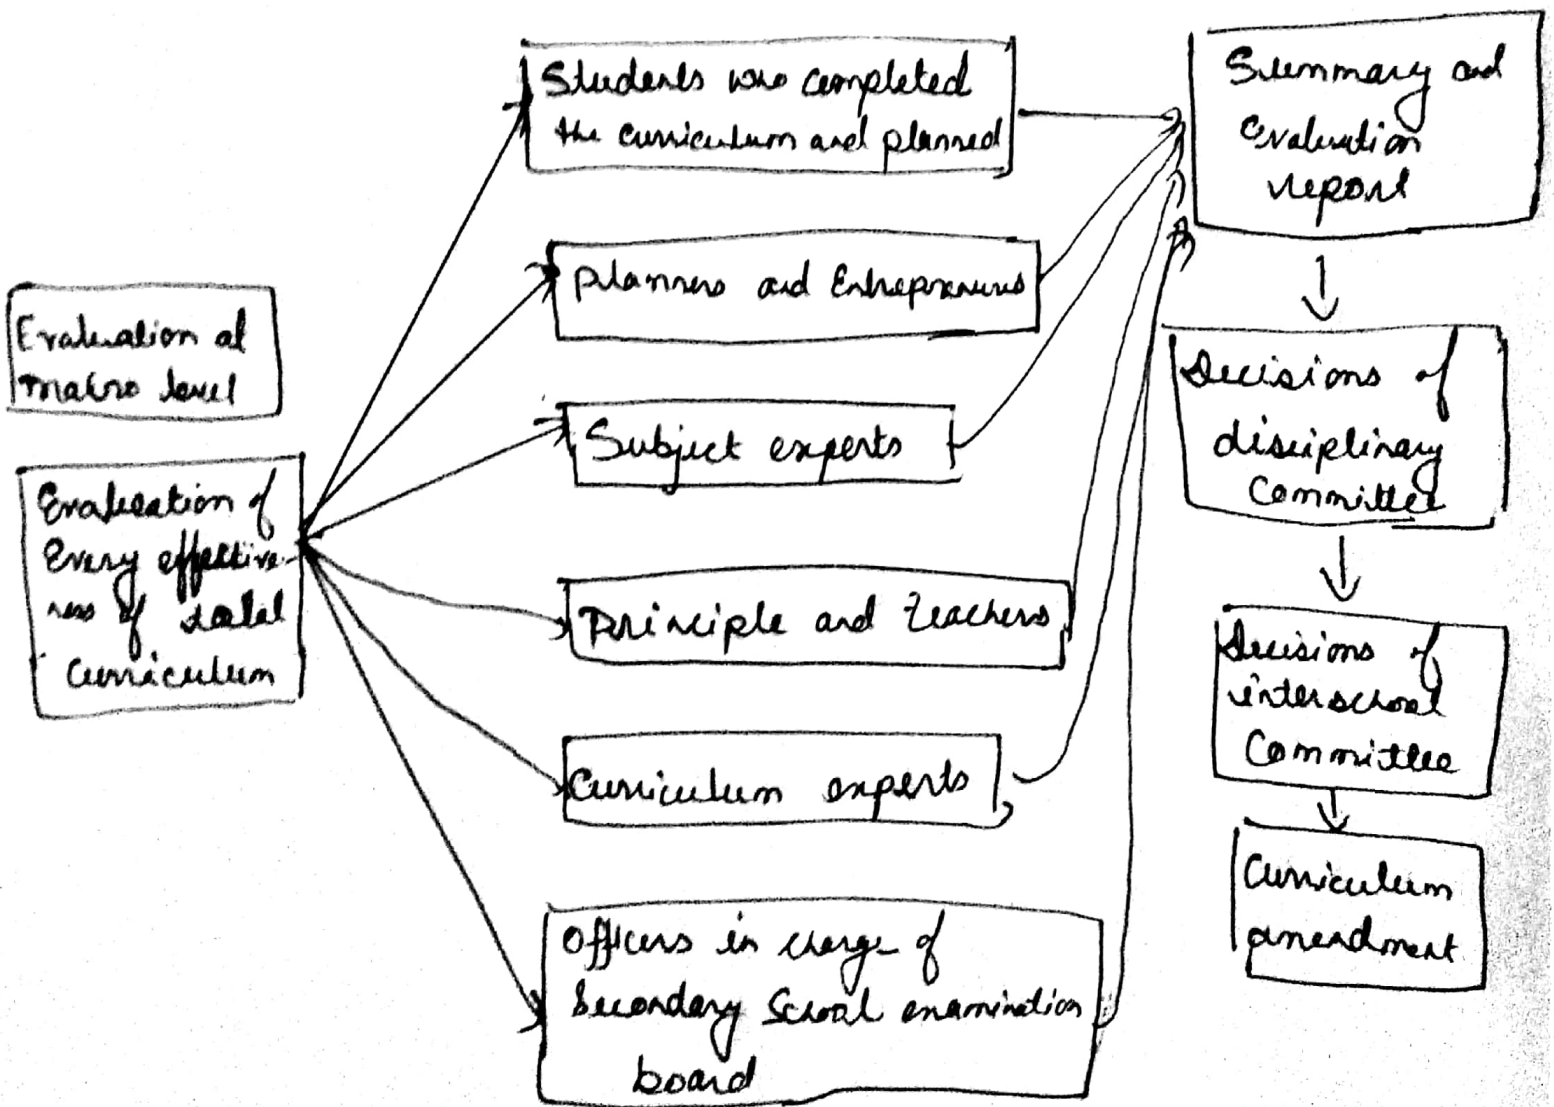 Evaluation at
macro level
Evaluation of
Every effective
ness of total
Curriculum
Students who completed
the curriculum and planned
planners and Entreprenures
Subject experts
Principle and teachers
Curriculum experts
Officers in charge of
Secondary School examination
board
Summary and
evaluation
report
Decisions of
disciplinary
Committee
Decisions of
interschool
Committee
Curriculum
amendment